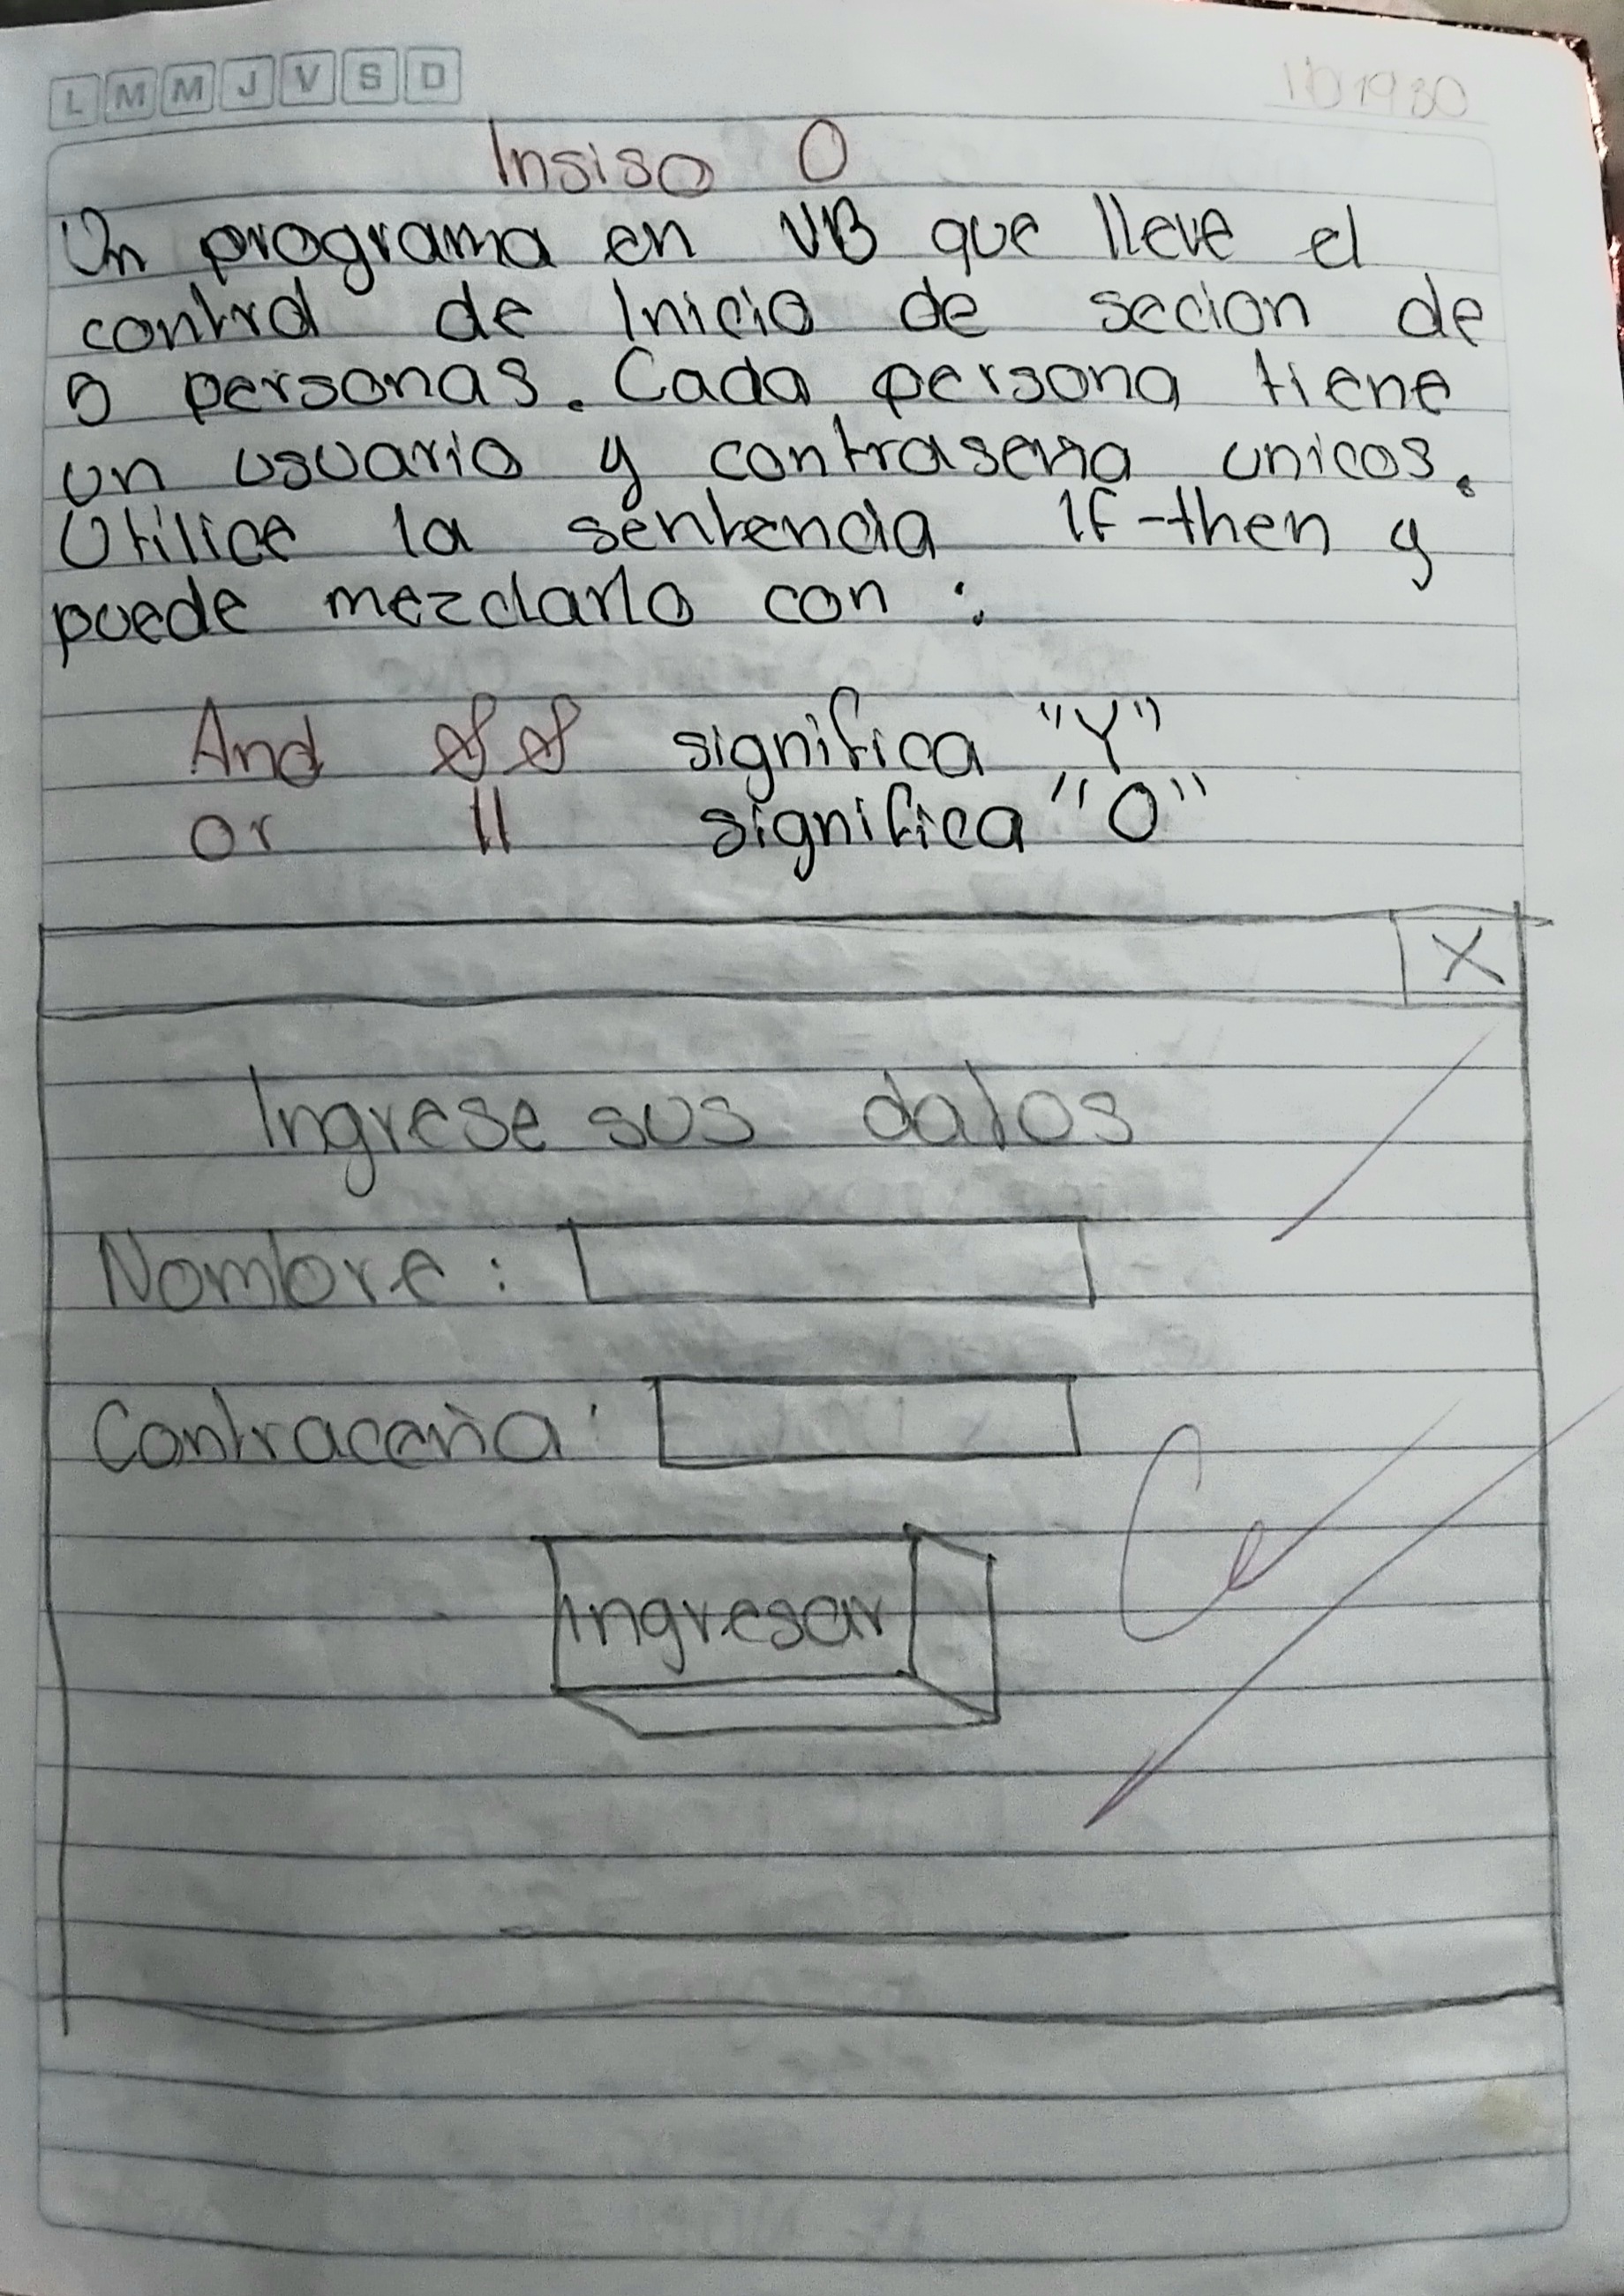 L M M J V S D
Insiso O
Un programa en VB que lleve el
control de Inicio de secion de
5 personas. Cada persona tiene
un usuario y contraseña unicos.
Utilice la sentencia If-then y
puede mezclarlo con :
And && significa "Y"
or || significa "O"
X
Ingrese sus datos
Nombre :
Contraceña :
Ingresar